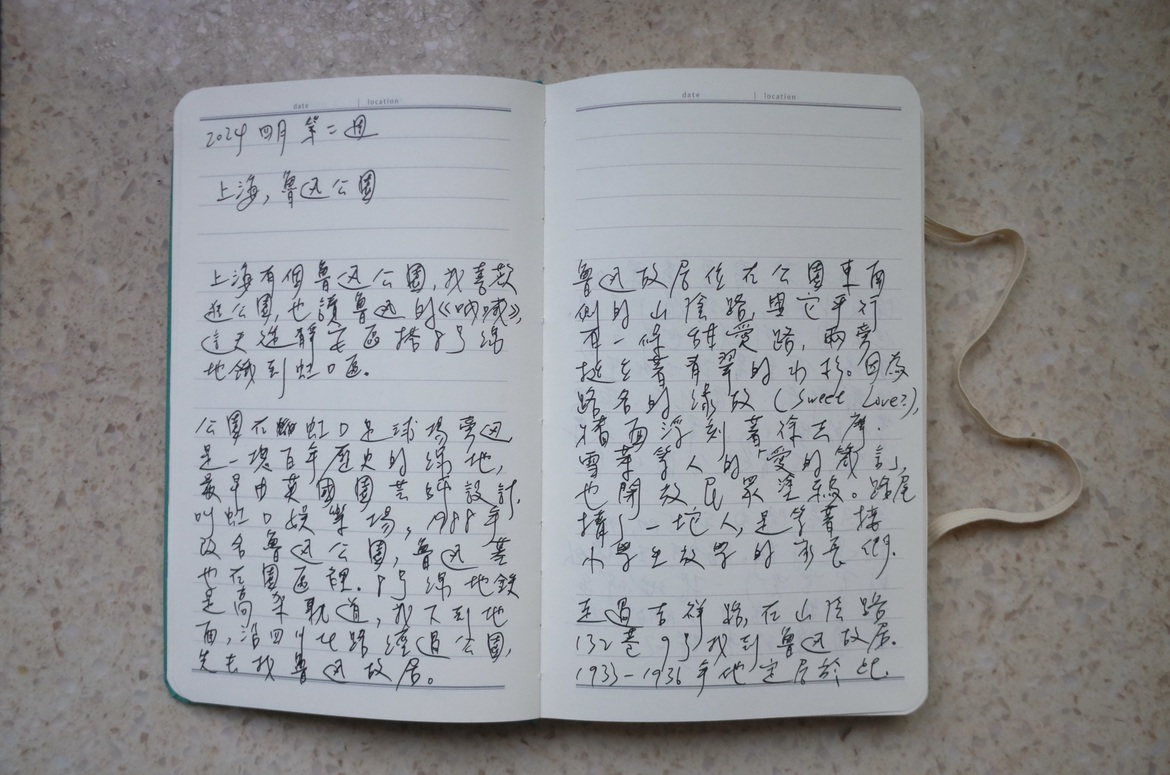 date | location
2024 四月 第二週
上海,魯迅公園
上海有個魯迅公園,我喜歡
逛公園,也讀魯迅的《吶喊》,
這天從靜安區搭8号線
地鐵到虹口區。
公園在虹口足球場旁邊
是一塊百年歷史的綠地,
最早由英國園芸師設計,
叫虹口娛樂場,1988年
改名魯迅公園,魯迅墓
也在園區裡.8号線地鉄
是高架軌道,我下到地
面,沿四川北路經過公園,
先去找魯迅故居。
date | location
魯迅故居位在公園東南
側的山陰路,與它平行
有一條甜愛路,兩旁
挺立著青翠的水杉。因為
路名的緣故(Sweet Love?),
牆面浮刻著徐志摩.
雪萊等人的「愛的箴言」,
也開放民眾塗鴉。路尾
擠了一坨人,是等著接
小學生放學的家長們.
走過吉祥路,在山陰路
132巷9号找到魯迅故居.
1933-1936年他定居於此.